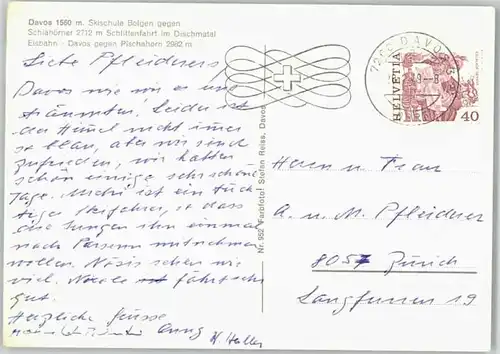 Davos 1560 m. Skischule Bolgen gegen
Schiahörner 2712 m Schlittenfahrt im Dischmatal
Eisbahn - Davos gegen Pischahorn 2982 m
Liebe Pfleiderers,
Davos wie wir es uns
träumten! Leider ist
der Himmel nicht immer
so blau, aber wir sind
zufrieden, wir hatten
schon einige sehr schöne
Tage. Michi ist ein tüch-
tiger Skifahrer, so dass
die Jungen ihn einmal
nach Parsenn mitnehmen
wollen. Nözis sehen wir
viel. Nicole fährt sehr
gut.
Herzliche Grüsse
H. Haller
Nr. 952 Farbfoto! Stefan Reiss, Davos
7260 DAVOS
HELVETIA
40
Herrn u. Frau
A. u. M. Pfleiderer
8057 Zürich
Langfurren 19